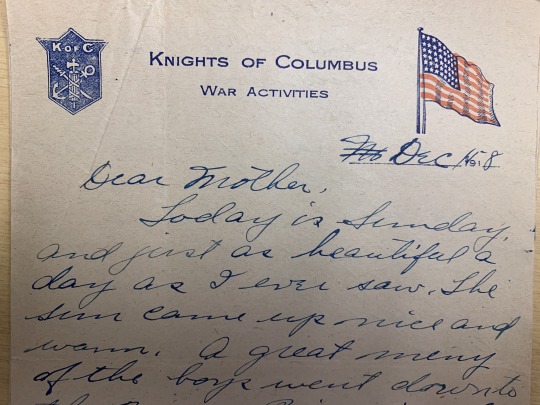 K of C
KNIGHTS OF COLUMBUS
WAR ACTIVITIES
Dec 15 1918
Dear Mother,
Today is Sunday,
and just as beautiful a
day as I ever saw. The
sun came up nice and
warm. A great meny
of the boys went down to
the